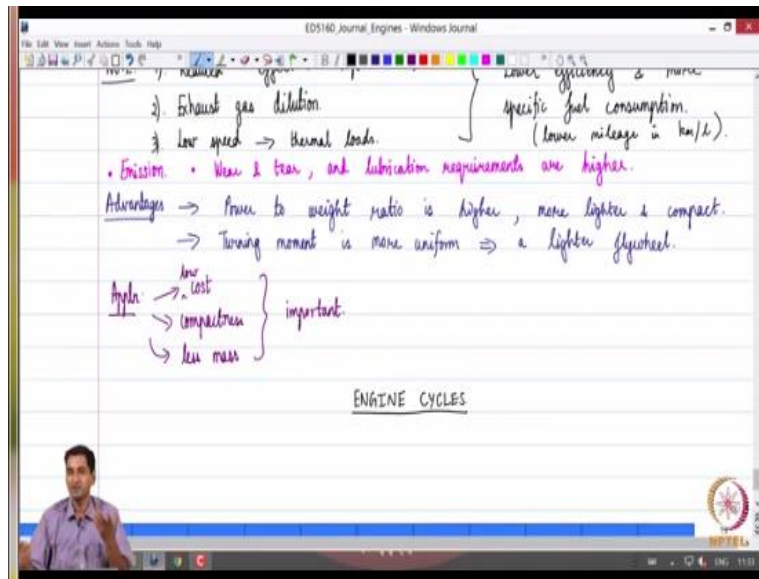 ED5160_Journal_Engines - Windows Journal
File Edit View Insert Actions Tools Help
2). Exhaust gas dilution.
3. Low speed → thermal loads.
Lower efficiency & more
specific fuel consumption.
(lower mileage in km/l).
• Emission. • Wear & tear, and lubrication requirements are higher.
Advantages → Power to weight ratio is higher, more lighter & compact.
→ Turning moment is more uniform ⇒ a lighter flywheel.
Appln. → low cost
→ compactness
→ less mass
important.
ENGINE CYCLES
NPTEL
ENG 11:33